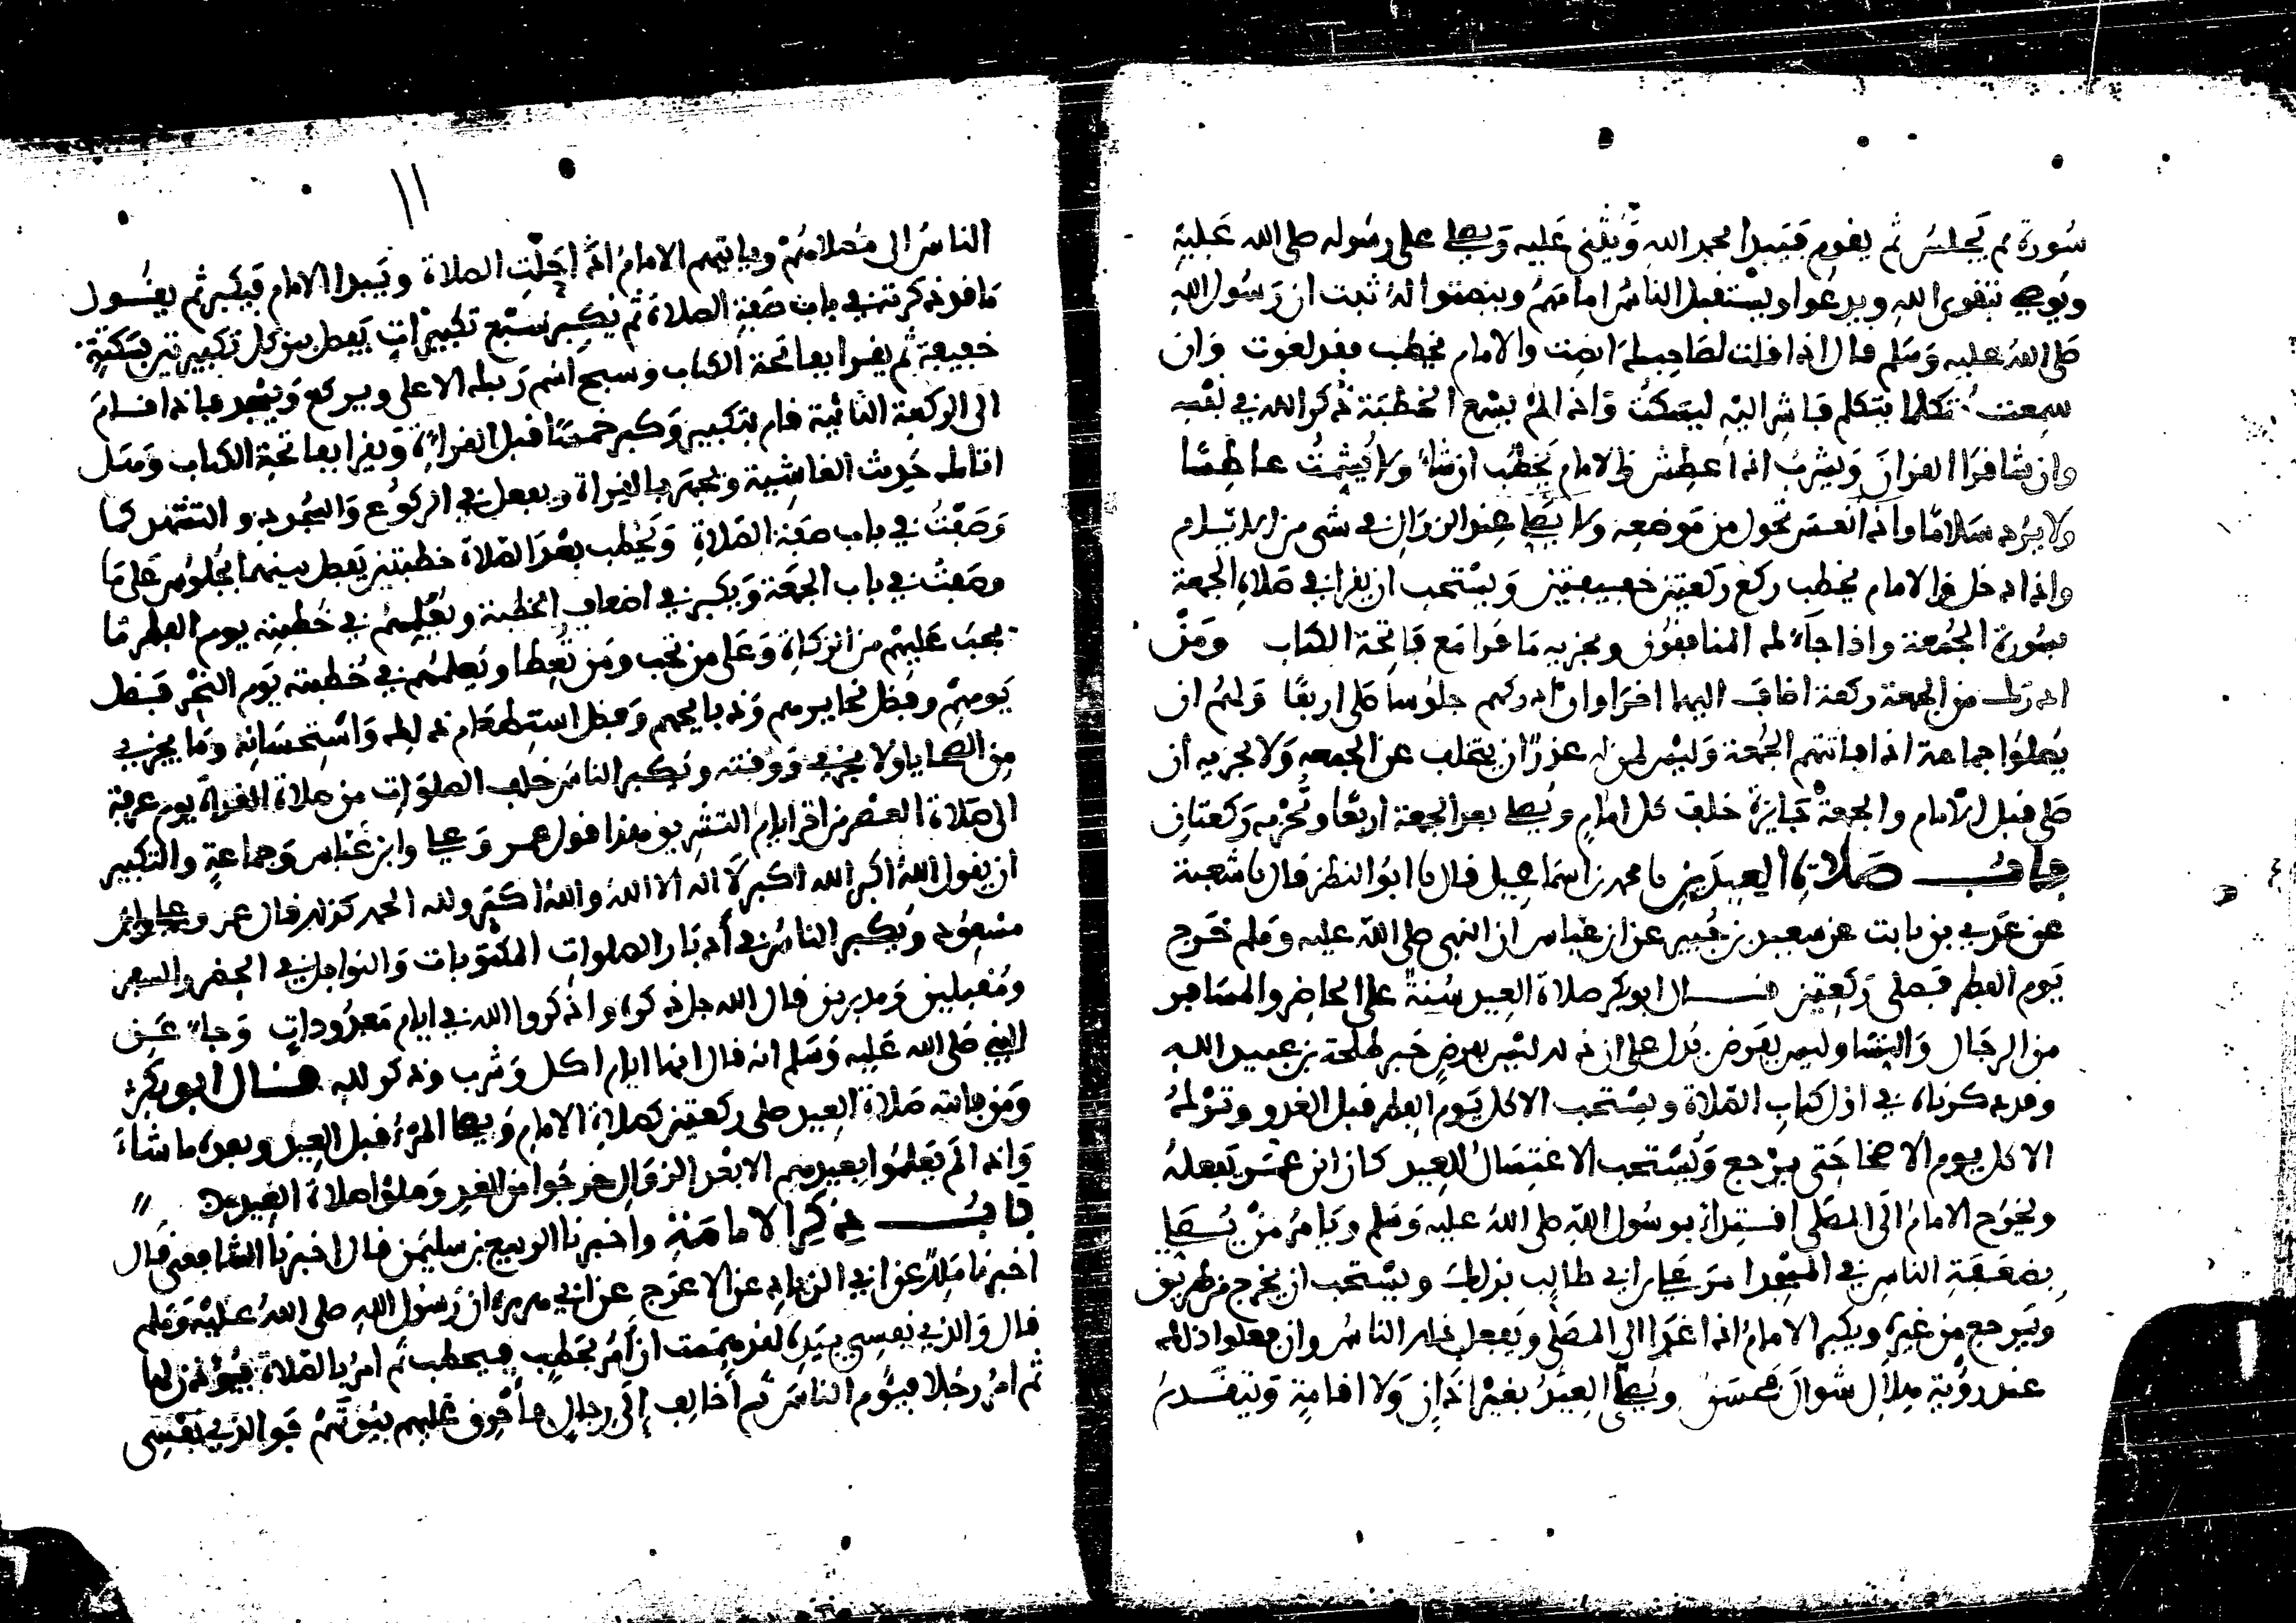 سورة ثم يجلس ثم يقوم فيبدا بحمد الله ويثني عليه ويصلي على رسوله صلى الله عليه
ويوصي بتقوى الله ويدعوا ويستقبل الناس امامهم وينصتوا له ثبت ان رسول الله
صلى الله عليه وسلم قال اذا قلت لصاحبك انصت والامام يخطب فقد لغوت وان
سمعت متكلما يتكلم فاشر اليه ليسكت واذا لم يسمع الخطبة ذكر الله في نفسه
وان شا قرا القران ويشرب اذا عطش والامام يخطب ان شا ولا يشمت عاطسا
ولا يرد سلاما واذا نعس تحول من موضعه ولا يصلي عند الزوال في شي من الايام
واذا دخل والامام يخطب ركع ركعتين خفيفتين ويستحب ان يقرا في صلاة الجمعة
بسورة الجمعة واذا جاك المنافقون ويجزيه ما قرا مع فاتحة الكتاب ومن
ادرك من الجمعة ركعة اضاف اليها اخرا وان ادركهم جلوسا صلى اربعا ولهم ان
يصلوا جماعة اذا فاتتهم الجمعة وليس لمن له عذر ان يتخلف عن الجمعه ولا يجزيه ان
صلى قبل الامام والجمعة جايزة خلف كل امام ويصلي بعد الجمعة اربعا وتجزيه ركعتان
باب صلاة العيدين نا محمد بن اسماعيل قال نا ابو النظر قال نا شعبة
عن عدي بن ثابت عن سعيد بن جبير عن ابن عباس ان النبي صلى الله عليه وسلم خرج
يوم الفطر فصلى ركعتين قال ابو بكر صلاة العيد سنة على الحاضر والمسافر
من الرجال والنسا وليس بفرض يدل على ان ذلك ليس بفرض خبر طلحة بن عبيد الله
وقد ذكرناه في اول كتاب الصلاة ويستحب الاكل يوم الفطر قبل الغدو وترك
الاكل يوم الاضحا حتى يرجع ويستحب الاغتسال للعيد كان ابن عمر يفعله
ويخرج الامام الى المصلى اقتدا برسول الله صلى الله عليه وسلم ويامر من يصلي
بضعفة الناس في المسجد امر علي بن ابي طالب بذلك ويستحب ان يخرج من طريق
ويرجع من غيره ويكبر الامام اذا غدا الى المصلى ويفعل ذلك الناس وان فعلوا ذلك
عند رؤية هلال شوال فحسن ويصلي العيد بغير اذان ولا اقامة ويتقدم
١١
الناس الى مصلاهم وياتيهم الامام اذا حلت الصلاة ويبدا الامام فيكبر ثم يقول
ما قد ذكرته في باب صفة الصلاة ثم يكبر سبع تكبيرات يفصل بين كل تكبيرتين بسكتة
خفيفة ثم يقرا بفاتحة الكتاب وسبح اسم ربك الاعلى ويركع ويسجد فاذا قام
الى الركعة الثانية قام بتكبير وكبر خمسا قبل القراة ويقرا بفاتحة الكتاب وهل
اتاك حديث الغاشية ويجهر بالقراة ويفعل في الركوع والسجود والتشهد كما
وصفت في باب صفة الصلاة ويخطب بعد الصلاة خطبتين يفصل بينهما بجلوس على ما
وصفت في باب الجمعة ويكبر في اضعاف الخطبة ويعلمهم في خطبته يوم الفطر ما
يجب عليهم من الزكاة وعلى من تجب ومن يعطا ويعلمهم في خطبته يوم النحر فضل
يومهم وفضل نحايرهم وذبايحهم وفضل استطعام ذلك واستحسانه وما يجزي
من الضحايا ولا يجزي ووقته ويكبر الناس خلف الصلوات من صلاة الغداة يوم عرفة
الى صلاة العصر من اخر ايام التشريق هذا قول عمر وعلي وابن عباس وجماعة والتكبير
ان يقول الله اكبر الله اكبر لا اله الا الله والله اكبر ولله الحمد كذلك قال عمر وعلي وابن
مسعود ويكبر الناس في أدبار الصلوات المكتوبات والنوافل في الحضر والسفر
ومقبلين ومدبرين قال الله جل ذكره واذكروا الله في ايام معدودات وجا عن
النبي صلى الله عليه وسلم انه قال انها ايام اكل وشرب وذكر لله قال ابو بكر
ومن فاتته صلاة العيد صلى ركعتين كصلاة الامام ويصلي المرء قبل العيد وبعده ما شاء
واذا لم يعلموا بعيدهم الا بعد الزوال خرجوا من الغد وصلوا صلاة العيد
باب ذكر الامامة واخبرنا الربيع بن سليمن قال اخبرنا الشافعي قال
اخبرنا ملك عن ابي الزناد عن الاعرج عن ابي هريرة ان رسول الله صلى الله عليه وسلم
قال والذي نفسي بيده لقد هممت ان آمر بحطب فيحطب ثم امر بالصلاة فيؤذن لها
ثم امر رجلا فيؤم الناس ثم أخالف إلى رجال فأحرق عليهم بيوتهم فوالذي نفسي